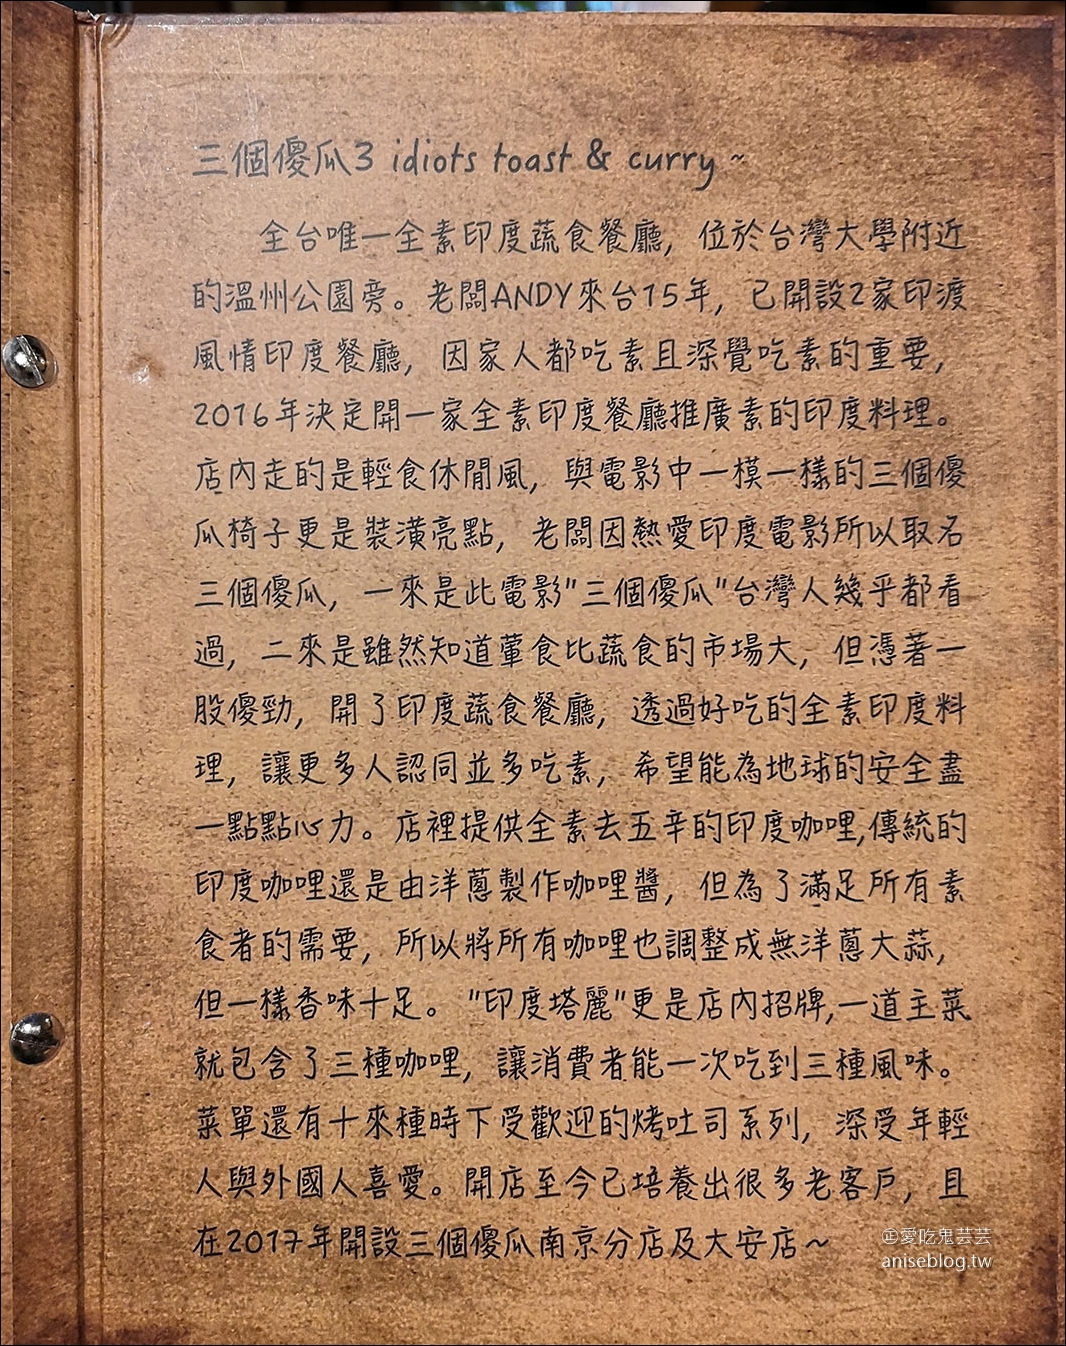 三個傻瓜3 idiots toast & curry ~
全台唯一全素印度蔬食餐廳, 位於台灣大學附近
的溫州公園旁。老闆ANDY來台15年, 已開設2家印渡
風情印度餐廳, 因家人都吃素且深覺吃素的重要,
2016年決定開一家全素印度餐廳推廣素的印度料理。
店內走的是輕食休閒風, 與電影中一模一樣的三個傻
瓜椅子更是裝潢亮點, 老闆因熱愛印度電影所以取名
三個傻瓜, 一來是此電影"三個傻瓜"台灣人幾乎都看
過, 二來是雖然知道葷食比蔬食的市場大, 但憑著一
股傻勁, 開了印度蔬食餐廳, 透過好吃的全素印度料
理, 讓更多人認同並多吃素, 希望能為地球的安全盡
一點點心力。店裡提供全素去五辛的印度咖哩,傳統的
印度咖哩還是由洋蔥製作咖哩醬, 但為了滿足所有素
食者的需要, 所以將所有咖哩也調整成無洋蔥大蒜,
但一樣香味十足。"印度塔麗"更是店內招牌,一道主菜
就包含了三種咖哩, 讓消費者能一次吃到三種風味。
菜單還有十來種時下受歡迎的烤吐司系列, 深受年輕
人與外國人喜愛。開店至今已培養出很多老客戶, 且
在2017年開設三個傻瓜南京分店及大安店~
㊣愛吃鬼芸芸
aniseblog.tw